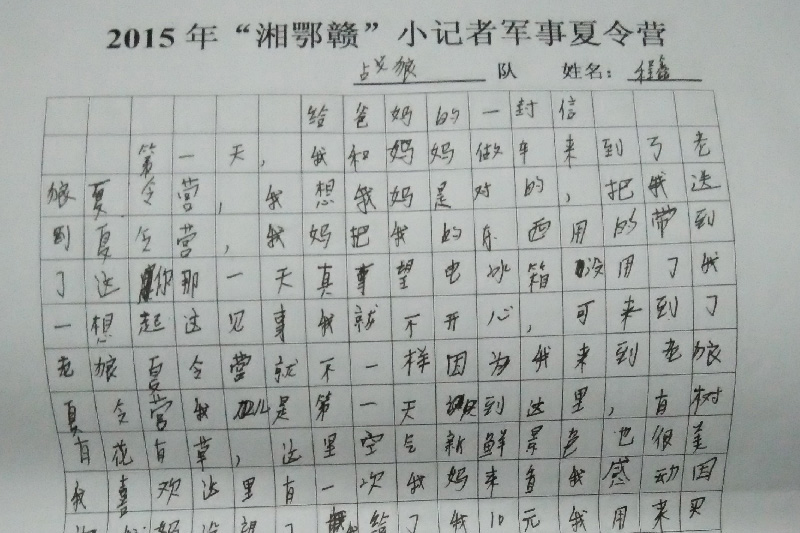 2015年“湘鄂赣”小记者军事夏令营
战狼 队 姓名：程鑫
给爸妈的一封信
第一天，我和妈妈做车来到了老
狼夏令营，我想我妈是对的，把我送
到夏令营，我妈把我的东西用的带到
了这 你那一天真事望电冰箱 没用了我
一想起这见事我就不开心，可来到了
老狼夏令营就不一样因为我来到老狼
夏令营我 是第一天 到这里，有树
有花有草，这里空气新鲜景色也很美
我喜欢这里有一次我妈来看我感动因
妈没望了 给了我10元我用来买